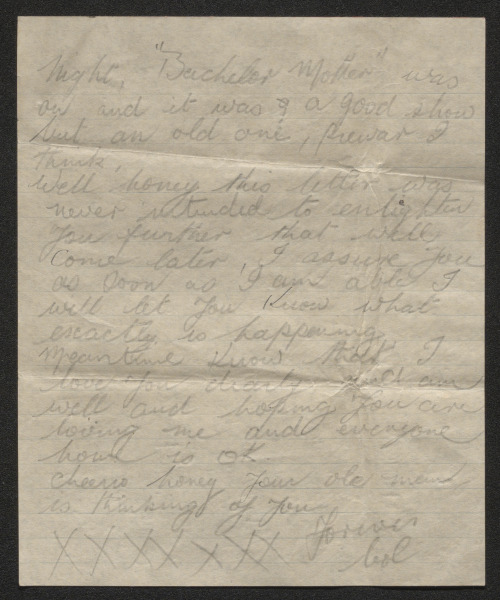 Night, "Bachelor Mother" was
on and it was a good show
but an old one, prewar I
think,
Well honey this letter was
never intended to enlighten
you further that will
come later, I assure you
as soon as I am able I
will let you know what
exactly is happening
Meantime know that I
love you dearly and am
well and hoping you are
loving me and everyone
home is ok.
Cheerio honey your old man
is thinking of you
forever
XXXXXXX